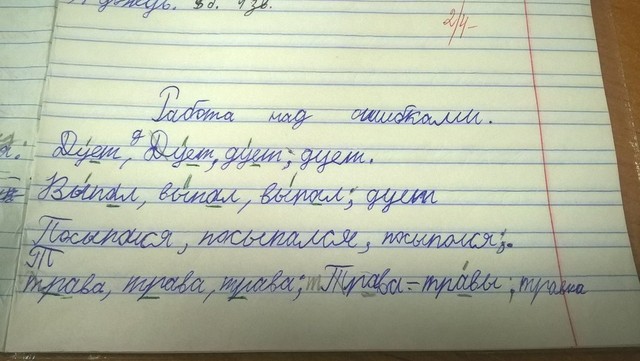 дождь.
2/4-
Работа над ошибками.
Дует, д Дует, дует; дует.
Выпал, выпал, выпал; дует
Посыпался, посыпался, посыпался;.
Т
трава, трава, трава; т Трава - травы; травка